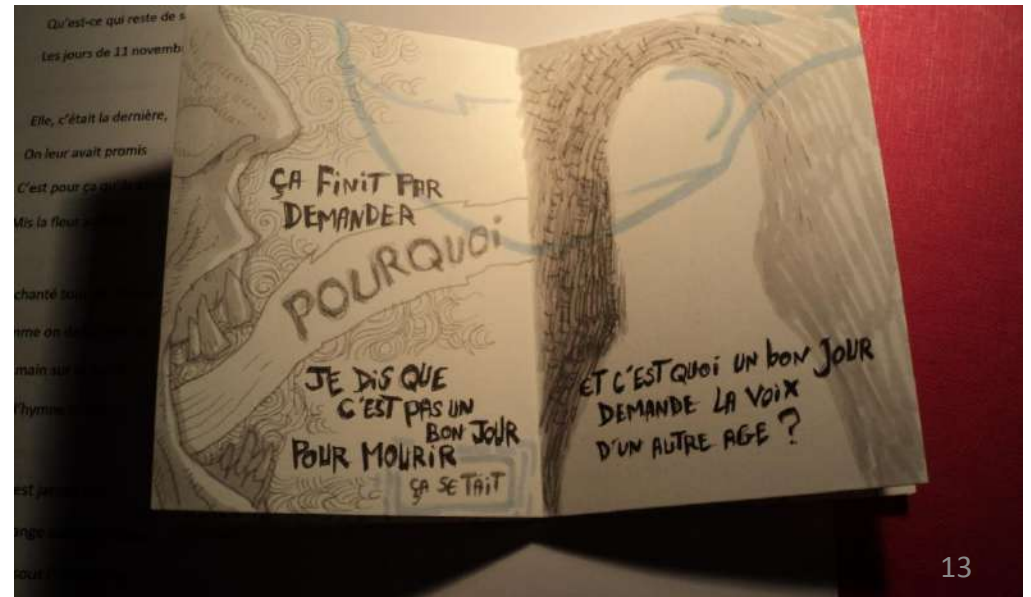 Qu'est-ce qui reste de
Les jours de 11 novemb
Elle, c'était la dernière,
On leur avait promis
C'est pour ça qu'
Mis la fleur
chanté
main sur
l'hymne
ÇA FINIT PAR
DEMANDER
POURQUOI
JE DIS QUE
C'EST PAS UN
BON JOUR
POUR MOURIR
ÇA SE TAIT
ET C'EST QUOI UN BON JOUR
DEMANDE LA VOIX
D'UN AUTRE AGE ?
13